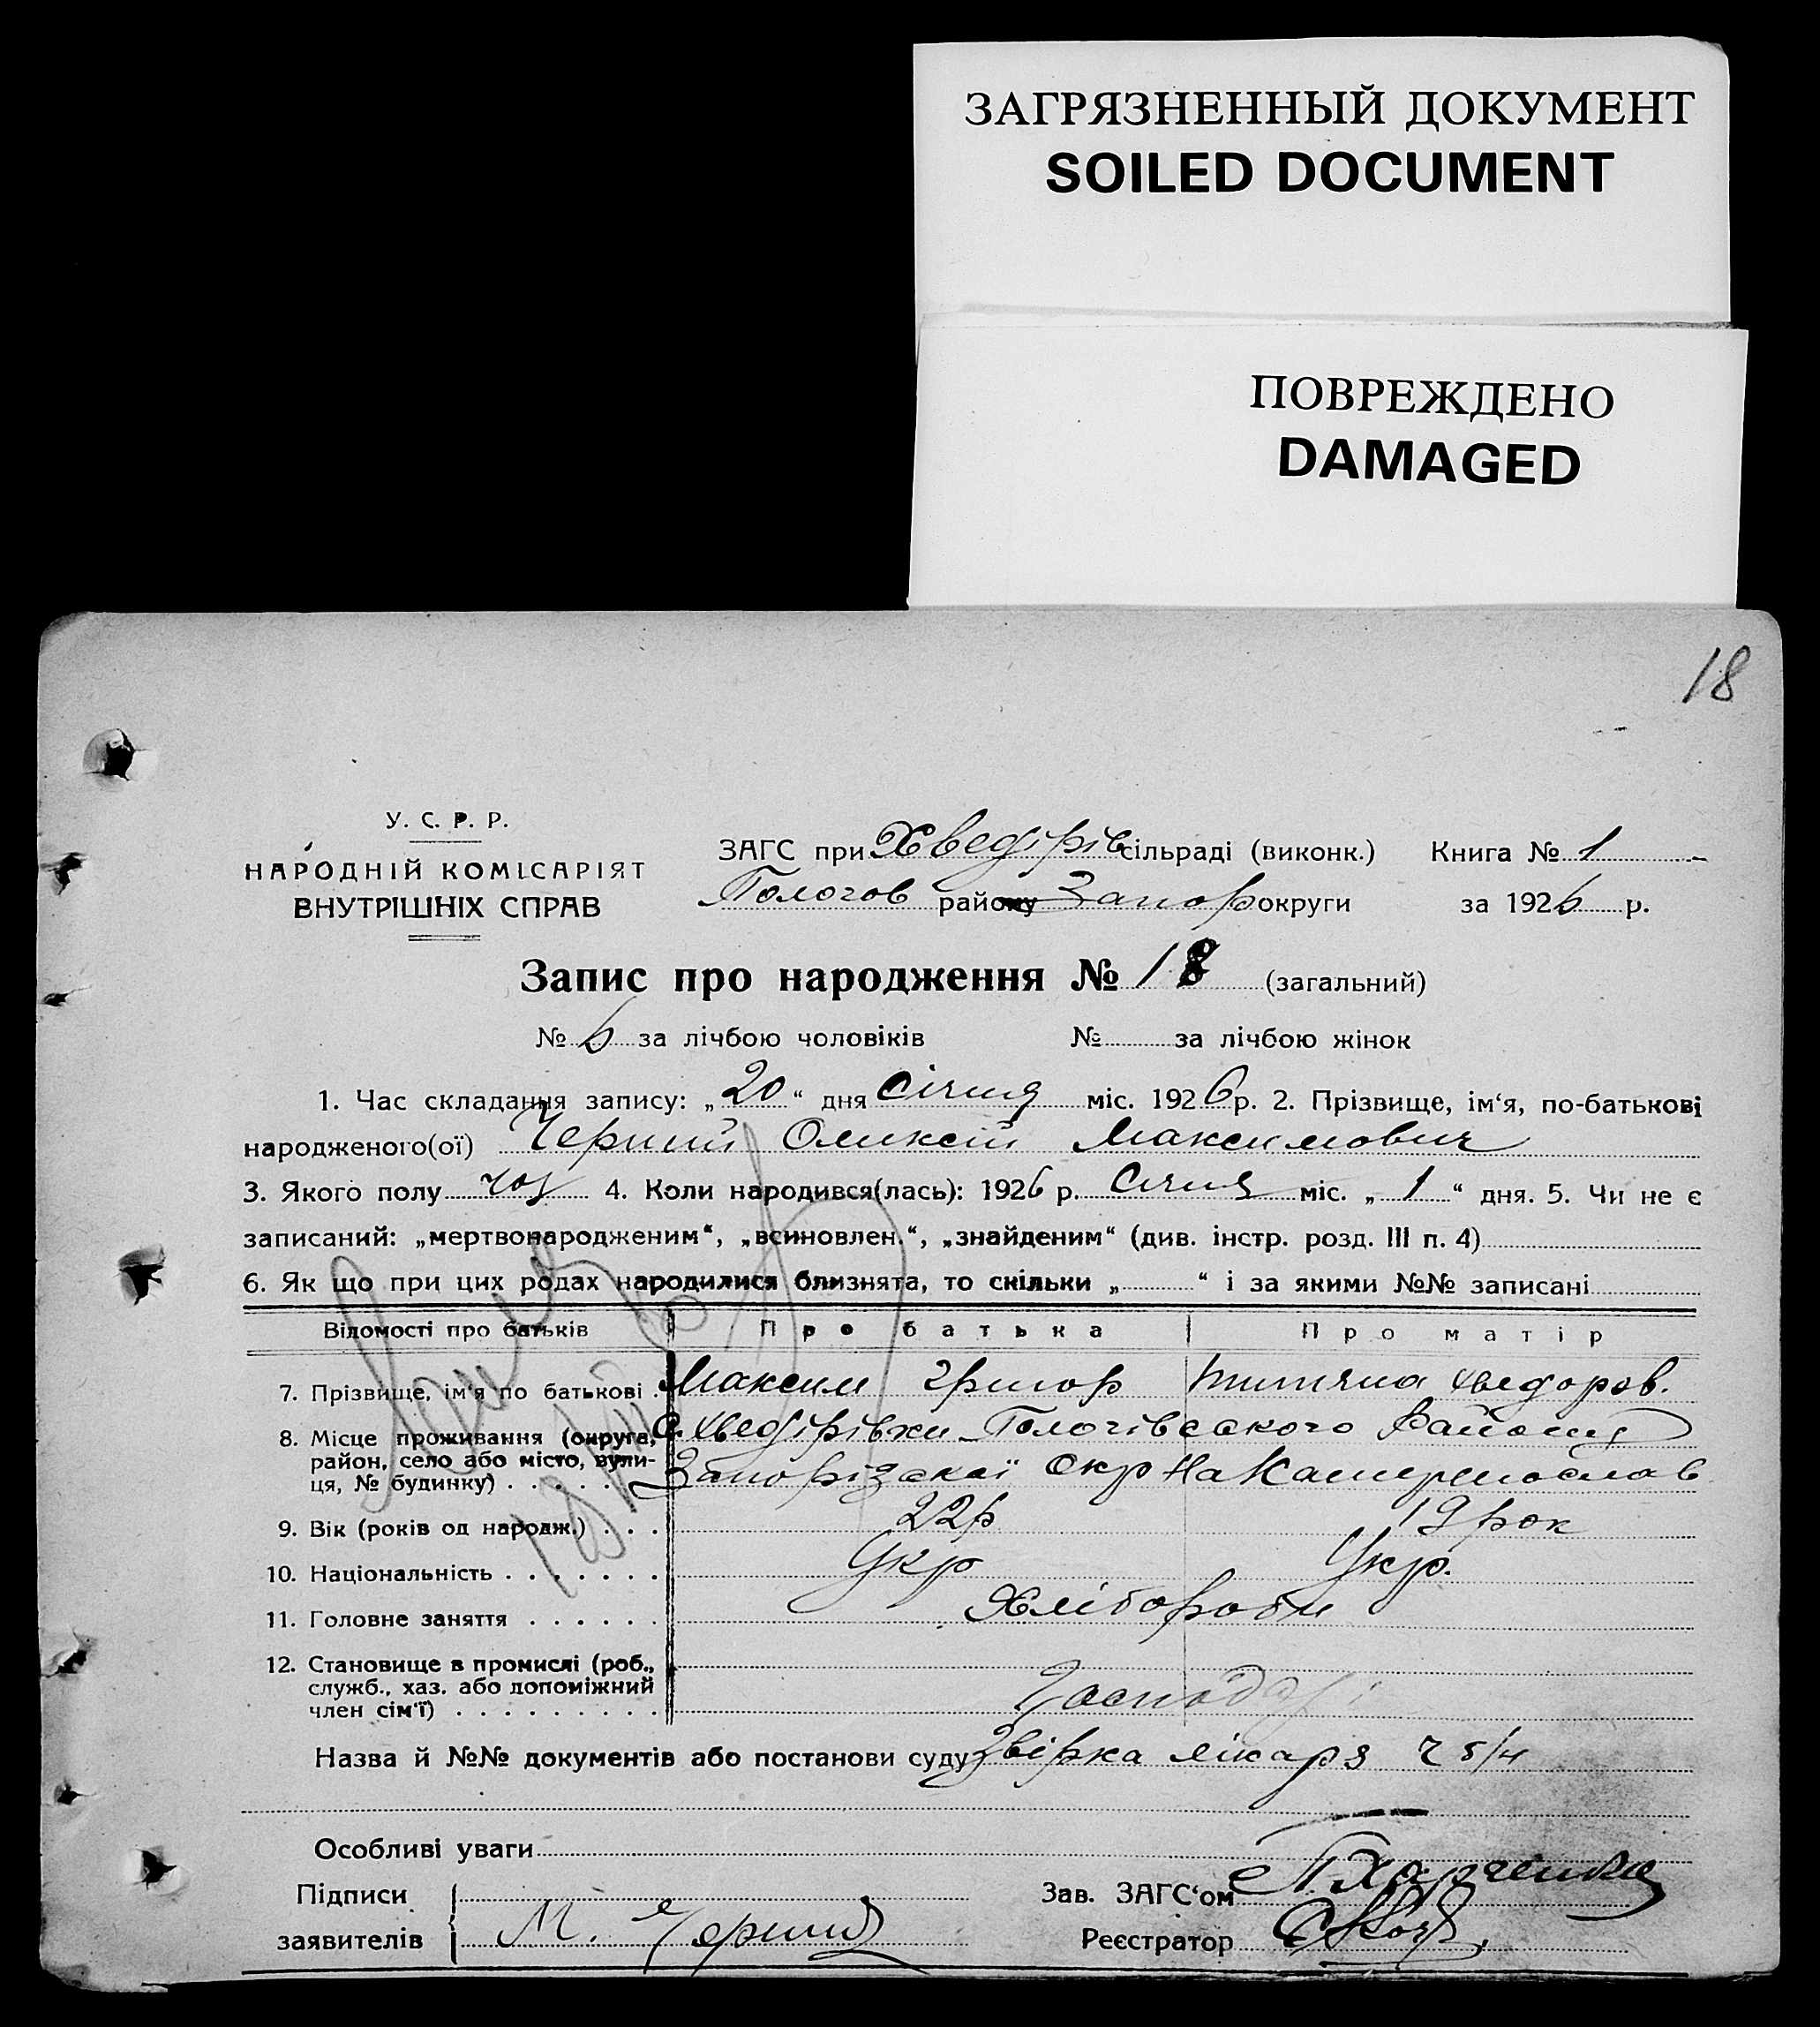 ЗАГРЯЗНЕННЫЙ ДОКУМЕНТ
SOILED DOCUMENT
ПОВРЕЖДЕНО
DAMAGED
18
У. С. Р. Р.
НАРОДНІЙ КОМІСАРІЯТ
ВНУТРІШНІХ СПРАВ
ЗАГС при Хведірів сільраді (виконк.) Книга № 1
Пологов району Запор округи за 1926 р.
Запис про народження № 18 (загальний)
№ 6 за лічбою чоловіків № за лічбою жінок
1. Час складання запису: „20“ дня Січня міс. 1926 р. 2. Прізвище, ім‘я, по-батькові
народженого(ої) Черний Олексій Максимович
3. Якого полу чол 4. Коли народився(лась): 1926 р. Січня міс. „1“ дня. 5. Чи не є
записаний: „мертвонародженим“, „всиновлен.“, „знайденим“ (див. інстр. розд. III п. 4)
6. Як що при цих родах народилися близнята, то скільки „ “ і за якими №№ записані
Відомості про батьків Про батька Про матір
7. Прізвище, ім‘я по батькові . Максим Григор Титяна Хведоров.
8. Місце проживання (округа, С. Хведірівки Пологівського Району
район, село або місто, вули-
ця, № будинку) . . . . . Запорізскої Окр На Катеринослав
9. Вік (років од народж.) . . . 22р 19 рок
10. Національність . . . . . . . Укр Укр.
11. Головне заняття . . . . . . Хлібороби
12. Становище в промислі (роб.,
служб., хаз. або допоміжний
член сім‘ї) . . . . . . . . . Господарі
Назва й №№ документів або постанови суду Звірка лікаря
Особливі уваги
Підписи Зав. ЗАГС‘ом Харченко
заявителів М. Черний Реєстратор